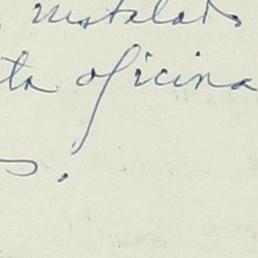 instalado
ta oficina
s.